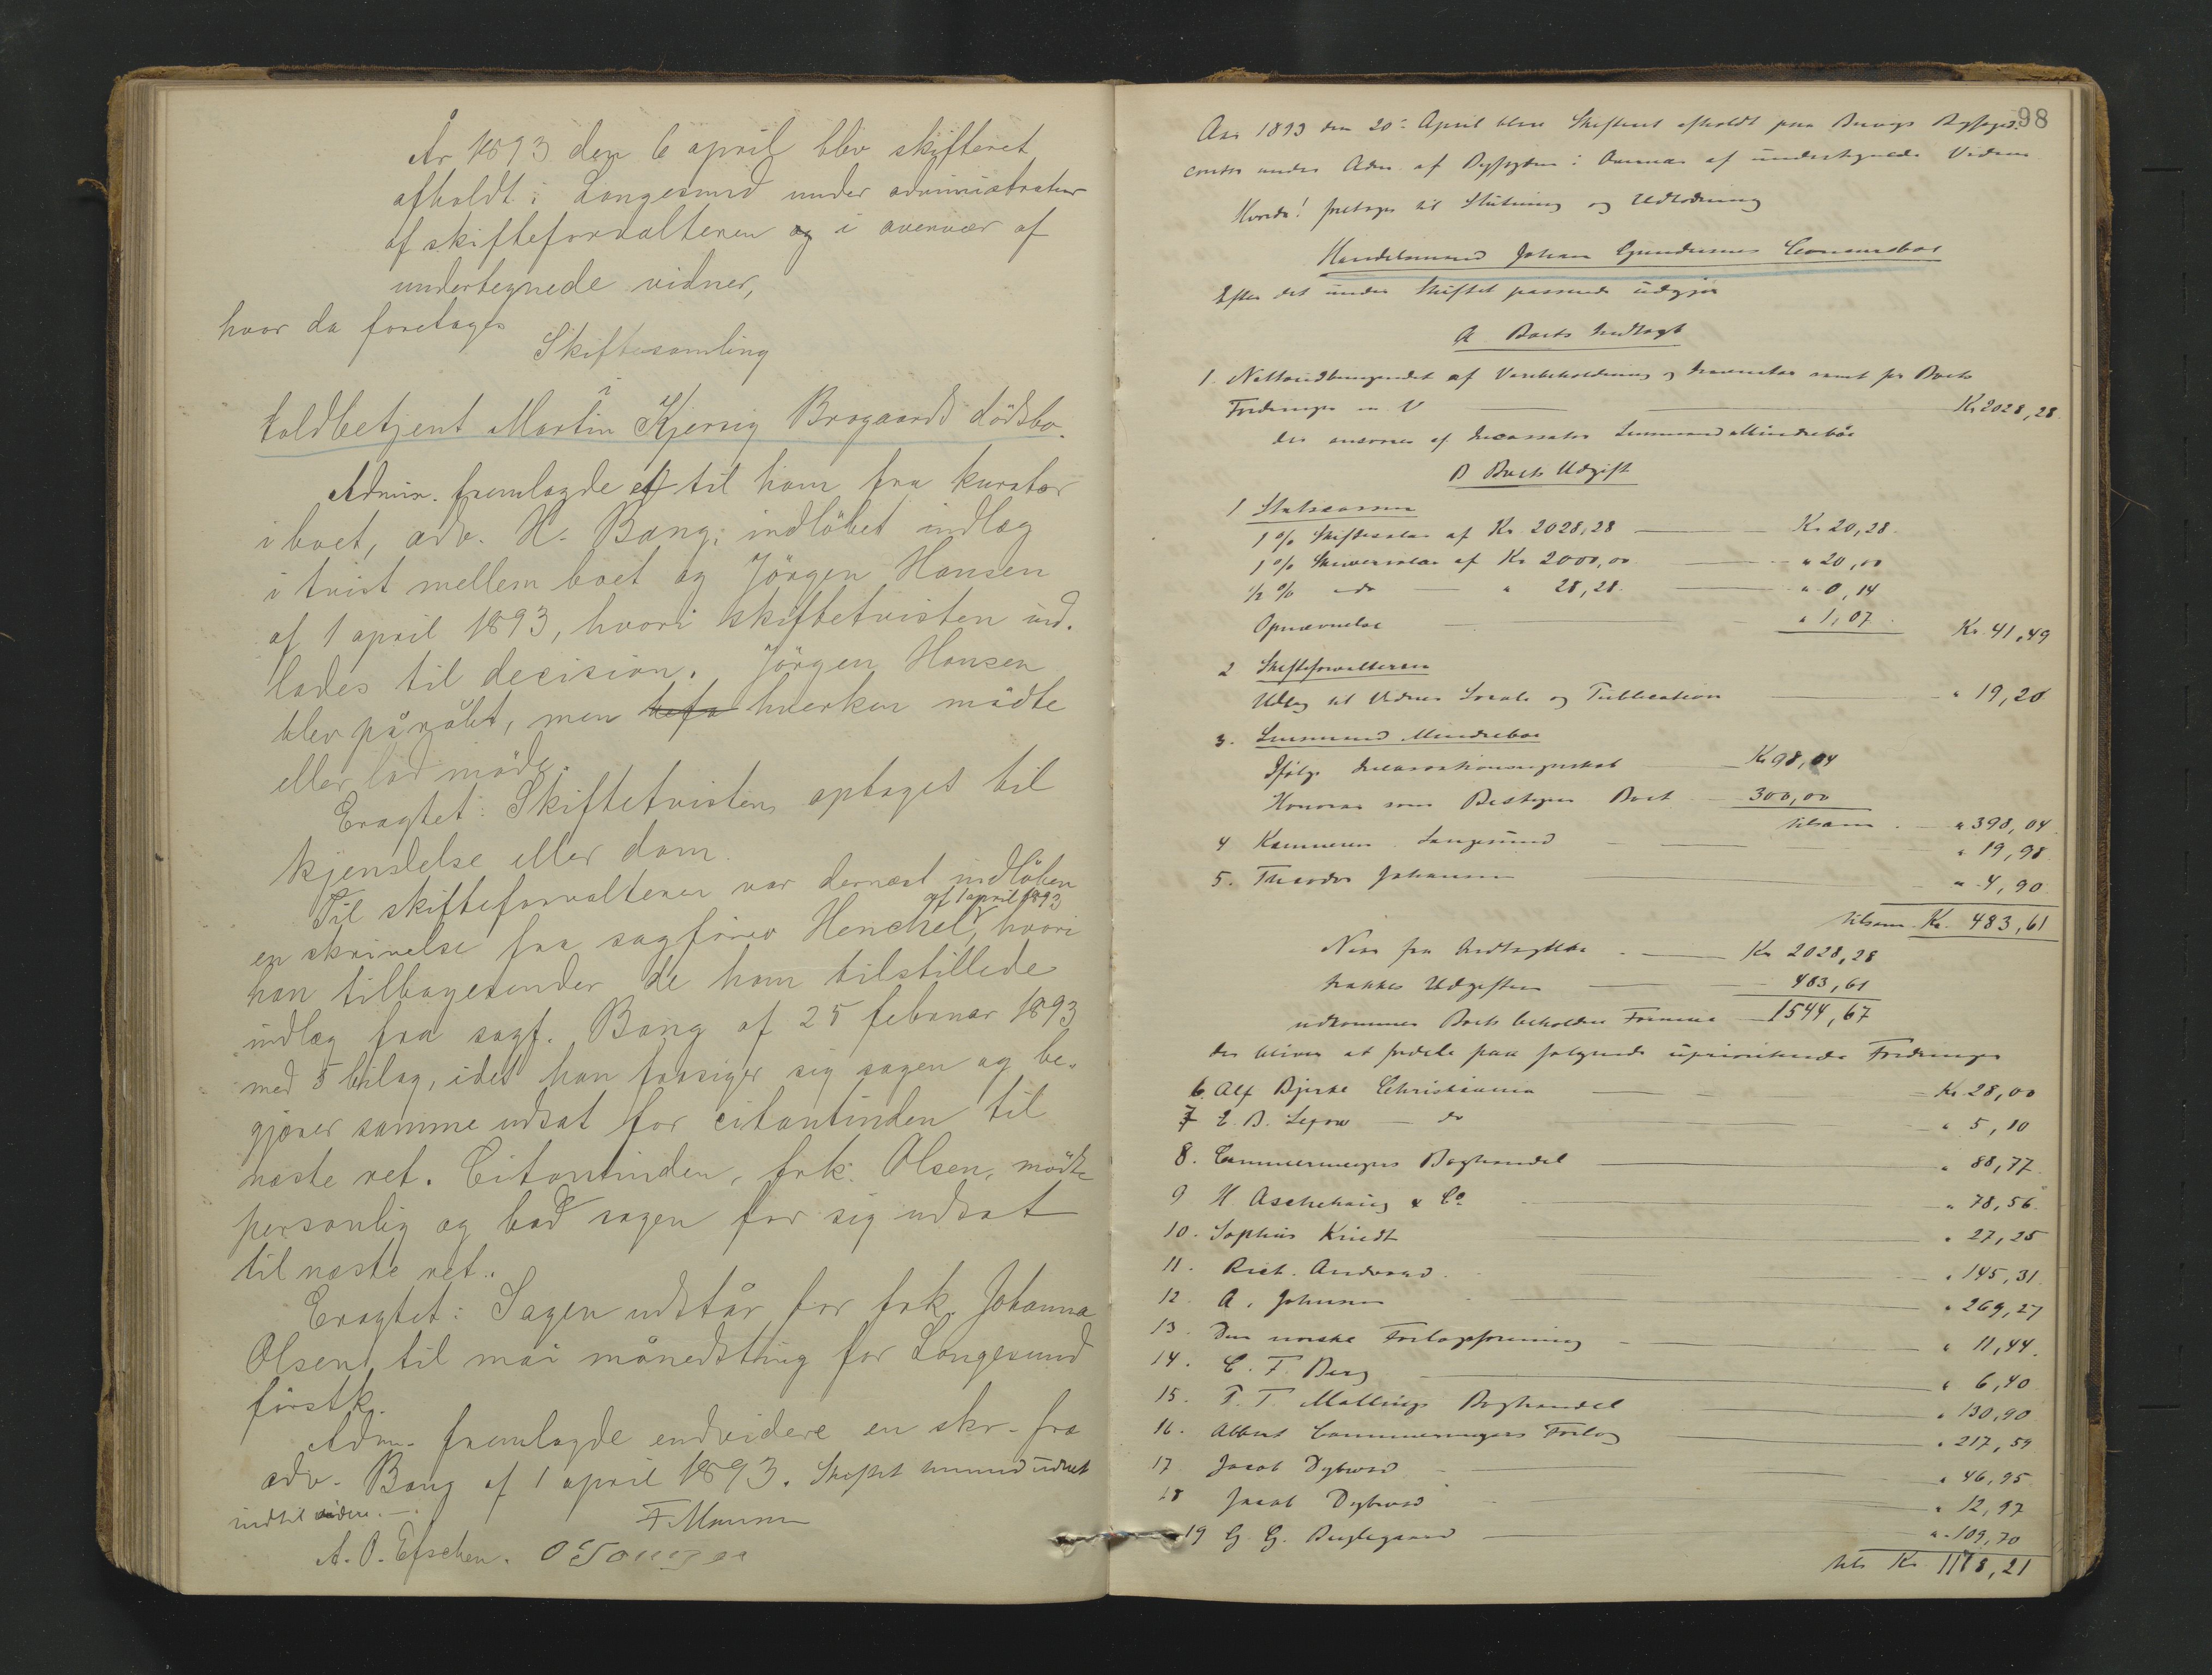 År 1893 den 6 april blev skifteret
afholdt i Langesund under administration
af skifteforvalteren og i overvær af
undertegnede vidner,
hvor da foretages
Skiftesamling
i
toldbetjent Martin Kjersig Brogaards dödsbo.
Admin. fremlagde et til ham fra kurator
i boet, adv. H. Bang, indlöbet indlæg
i tvist mellem boet og Jörgen Hansen
af 1 april 1893, hvori skiftetvisten ind-
lades til decision. Jörgen Hansen
blev påråbt, men hverken mödte
eller lod möde.
Eragtet: Skiftetvisten optages til
kjendelse eller dom.
Til skifteforvalteren var dernæst indlöben
af 1 april 1893
en skrivelse fra sagförer Henchel, hvori
han tilbagesender de ham tilstillede
indlæg fra sagf. Bang af 25 februar 1893
med 5 bilag, idet han frasiger sig sagen og be-
gjærer samme udsat for citantinden til
næste ret. Citantinden, frk. Olsen, mödte
personlig og bad sagen for sig udsat
til næste ret.
Eragtet: Sagen udstår for frk. Johanna
Olsen til mai månedsting for Langesund
förstk.
Adm. fremlagde endvidere en skr. fra
adv. Bang af 1 april 1893. Skiftet udsat
indtil videre.
A. O. Efschen.
98
Aar 1893 den 20. April blev Skifteret afholdt paa Brevigs Byfoged-
contor under Adm. af Byfogden i Overvær af undertegnede Vidner
Hvorda! foretoges til Slutning og Udlodning
Handelsmand Johan Gundersens Concursbo
Efter det under Skiftet passerede udgjør
A Boets Indtægt
1. Nettoudbringendet af Varebeholdning og Inventar samt for Boets
Fordringer m. V Kr 2028,28
der ansvares af Incassator Lensmand Mindreboe
B Boets Udgift
1 Statscassen
1 % Skiftesalær af Kr. 2028,28 Kr. 20,28
1 % Skriversalær af Kr 2000,00 " 20,00
1/2 % do " 28,28 " 0,14
Opnævnelse " 1,07 Kr. 41,49
2 Skifteforvalteren
Udlæg til Vidner Locale og Publication " 19,20
3. Lensmand Mindreboe
Ifølge Incassationsregnskab Kr 98,04
Honorar som Bestyrer Boet 300,00
tilsam " 398,04
4 Kæmneren Langesund " 19,98
5. Theodor Johansen " 4,90
tilsam Kr. 483,61
Naar fra Indtægten Kr 2028,28
trækkes Udgiften 483,61
udkommer Boets beholdne Formue 1544,67
der bliver at fordele paa følgende uprioriterede Fordringer
6. Alf Bjerke Christiania Kr. 28,00
7 E. B. do " 5,10
8. Cammermeyers Boghandel " 88,77
9 H. Aschehoug & Co " 78,56
10. Sophus Kriedt " 27,25
11. Rich. Andvord " 145,31
12. A. Johnsen " 269,27
13. Den norske Forlagsforening " 11,44
14. C. F. Berg " 6,40
15. P. T. Mallings Boghandel " 130,90
16. Albert Cammermeyers Forlag " 217,59
17 Jacob Dybwad " 46,95
18 Jacob Dybwad " 12,97
19 G. G. " 109,70
tils Kr 1178,21